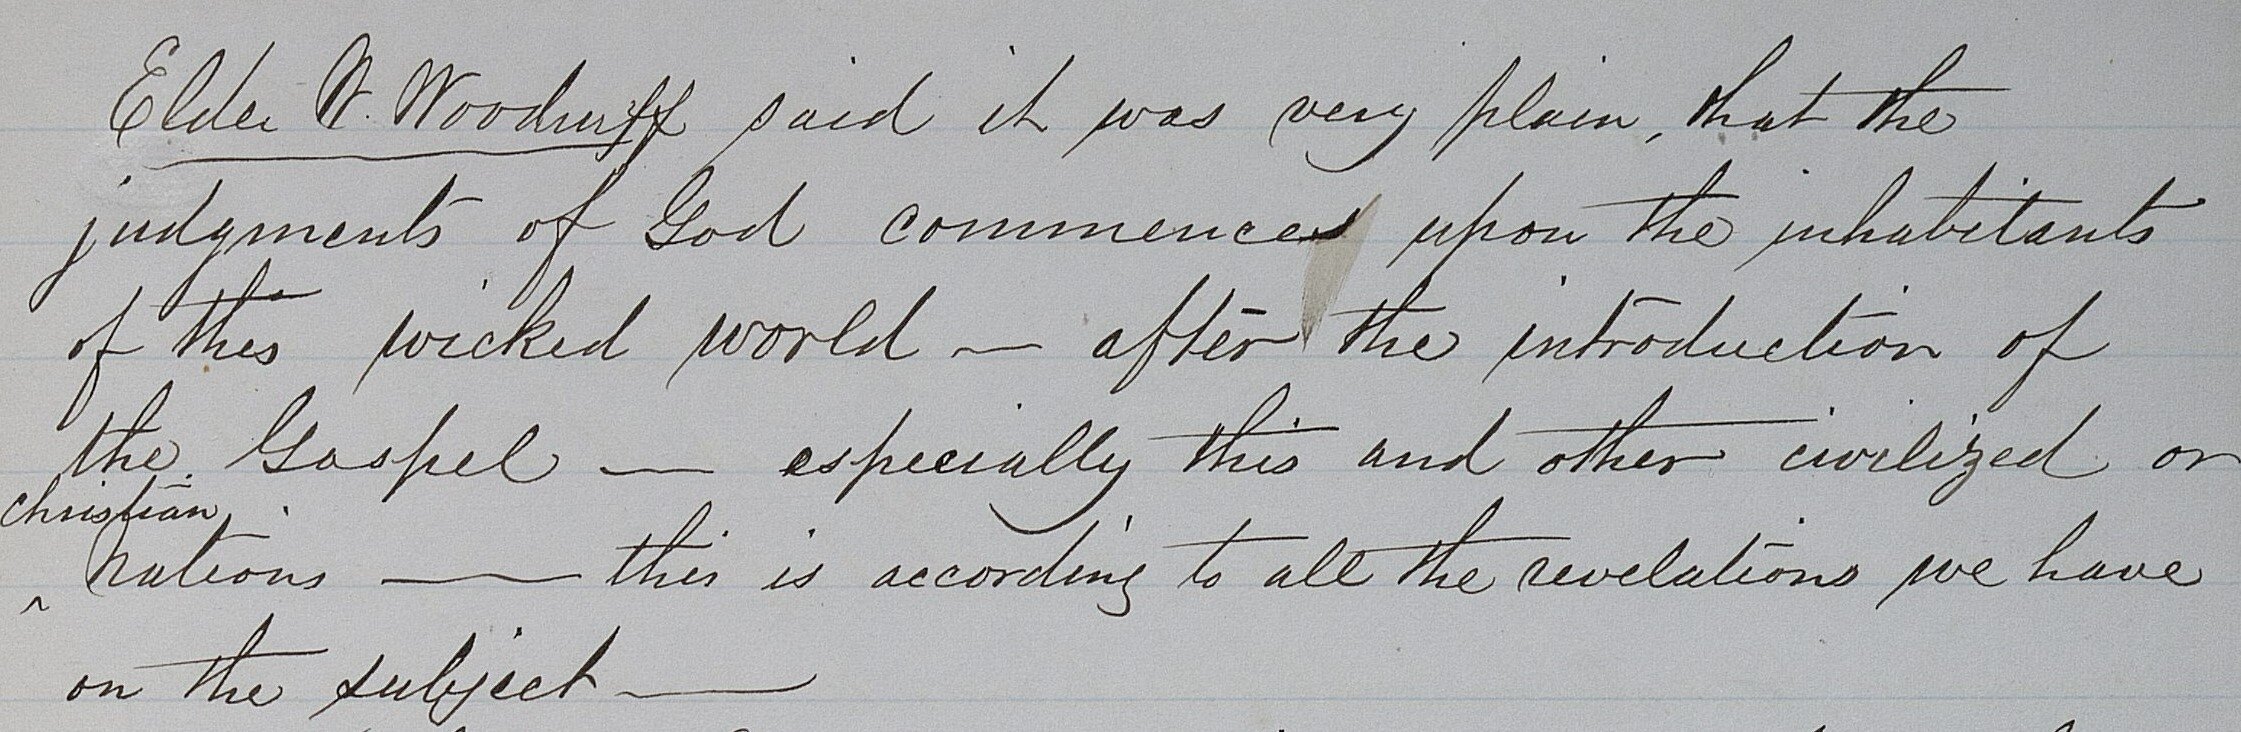 Elder W. Woodruff said it was very plain, that the
judgments of God commences upon the inhabitants
of this wicked world — after the introduction of
the Gospel — especially this and other civilized or
christian
^ nations — this is according to all the revelations we have
on the subject —